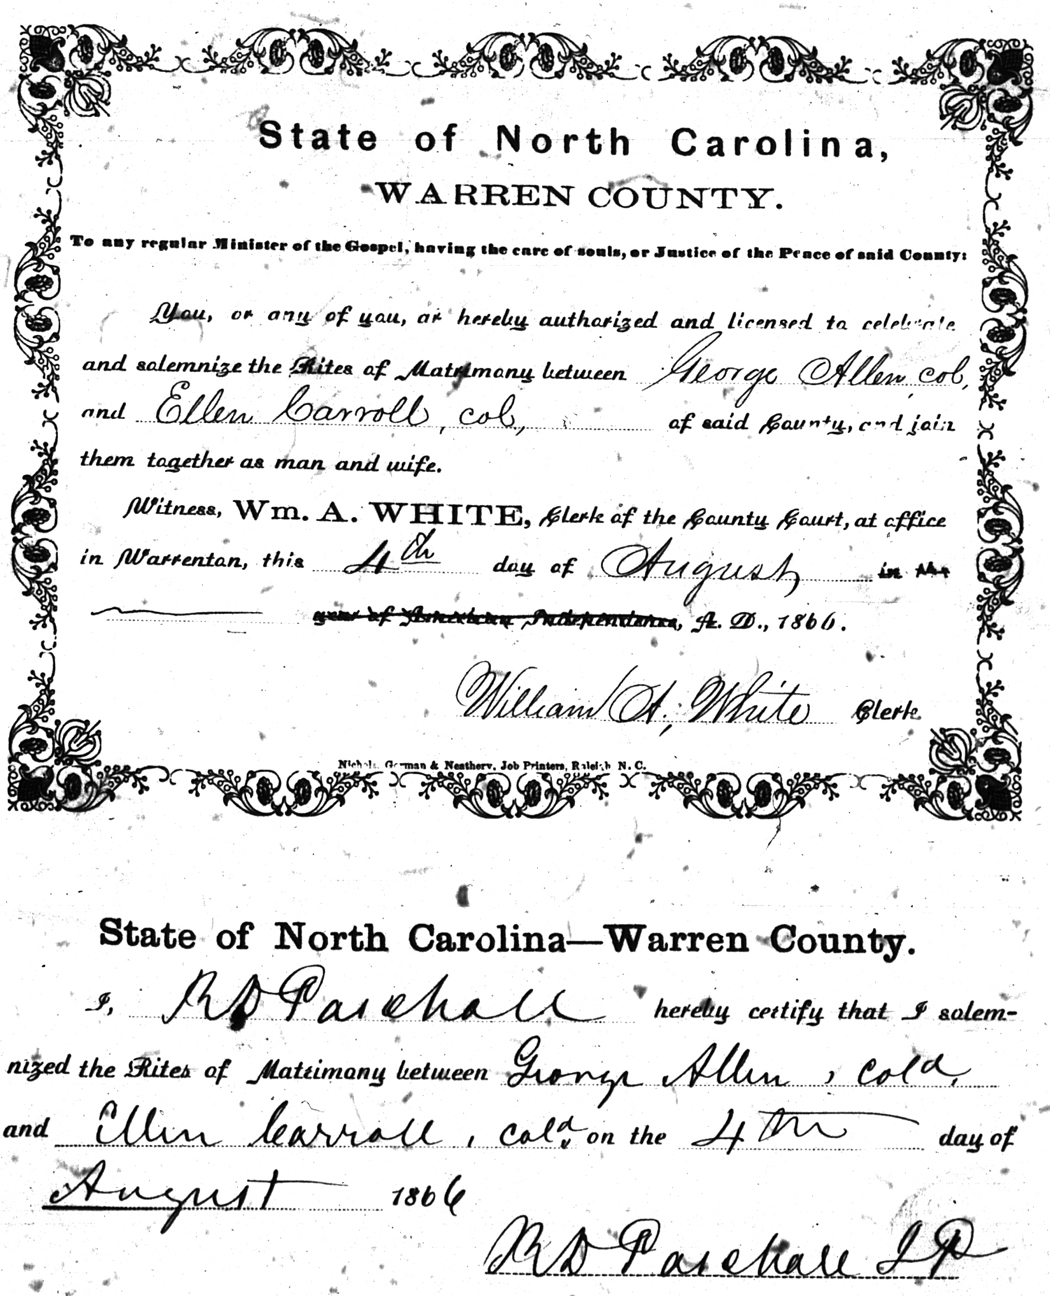 State of North Carolina,
WARREN COUNTY.
To any regular Minister of the Gospel, having the care of souls, or Justice of the Peace of said County:
You, or any of you, are hereby authorized and licensed to celebrate
and solemnize the Rites of Matrimony between George Allen, col,
and Ellen Carroll, col, of said County, and join
them together as man and wife.
Witness, Wm. A. WHITE, Clerk of the County Court, at office
in Warrenton, this 4th day of August in the
year of American Independence, A. D., 1866.
William A. White Clerk
Nichols, Gorman & Neathery, Job Printers, Raleigh N. C.
State of North Carolina—Warren County.
I, R D Paschall hereby certify that I solem-
nized the Rites of Matrimony between George Allen, cold,
and Ellen Carroll, cold, on the 4th day of
August 1866
R D Paschall J P